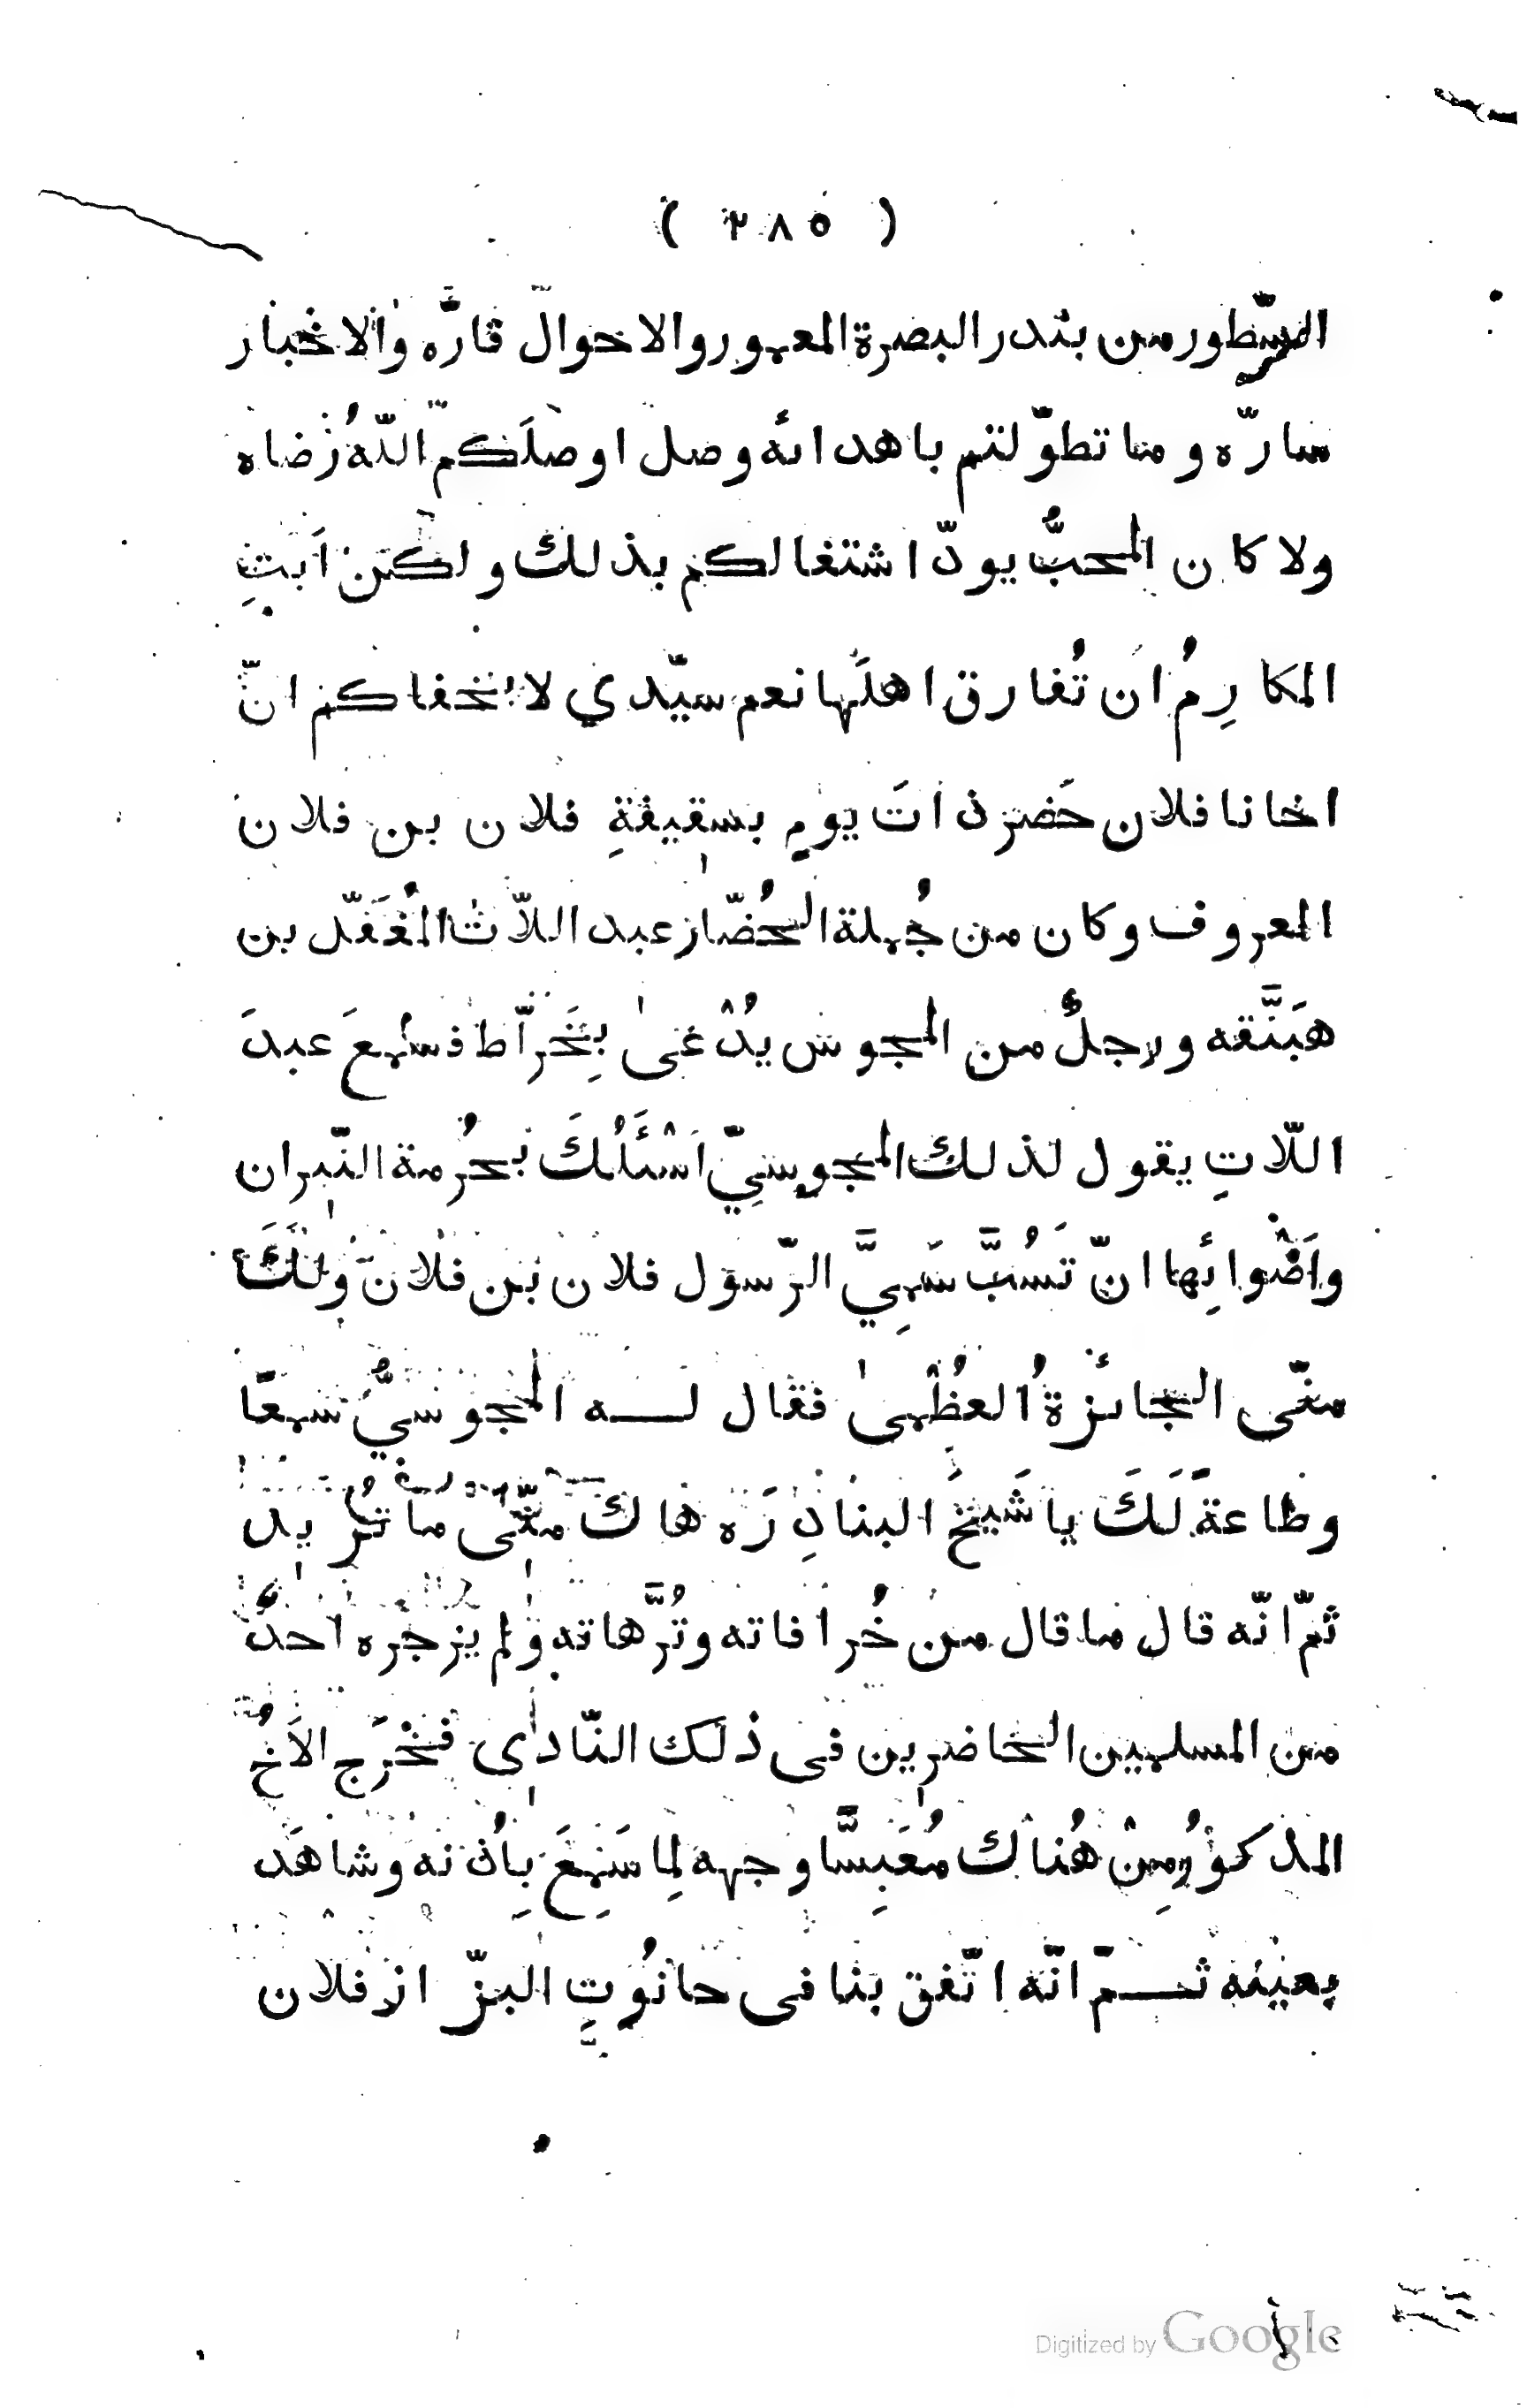 ( ٢٨٥ )
السّطور من بندر البصرة المعمور والاحوال قارّه والاخبار
سارّه وما تطوّلتم باهدائه وصل اوصلَكم اللّهُ رضاه
ولا كان المحبُّ يودّ اشتغالكم بذلك ولكن اَبَتِ
المكارِمُ ان تُفارق اهلَها نعم سيّدي لا يخفاكم انّ
اخانا فلان حَضر ذاتَ يومٍ بسقيفةِ فلان بن فلان
المعروف وكان من جُملة الحُضّار عبد اللاّت المُغَفّل بن
هَبَنَّقه ورجلٌ من المجوس يُدْعىٰ بِخَرّاط فسمِعَ عبدَ
اللّاتِ يقول لذلك المجوسِيّ اَسْئَلُكَ بحُرمة النّيران
واَضْوائِها انّ تَسُبَّ سَمِيَّ الرّسول فلان بن فلان ولَكَ
منّى الجائزةُ العظْمىٰ فقال له المجوسيُّ سَمعًا
وطاعةً لَكَ يا شَيخَ البنادِرَه هاك منّى ما تُريد
ثمّ انّه قال ما قال من خُرافاته وتُرَّهاته ولم يزجره احدٌ
من المسلمين الحاضرين فى ذلك النّادى فخْرَج الاَخُ
المذكوُر مِنْ هُناك مُعَبِسًّا وجهه لِما سَمِعَ بِاُذنه وشاهَد
بعينه ثمّ انّه اتّفق بنا فى حانُوتِ البزّاز فلان
Digitized by Google